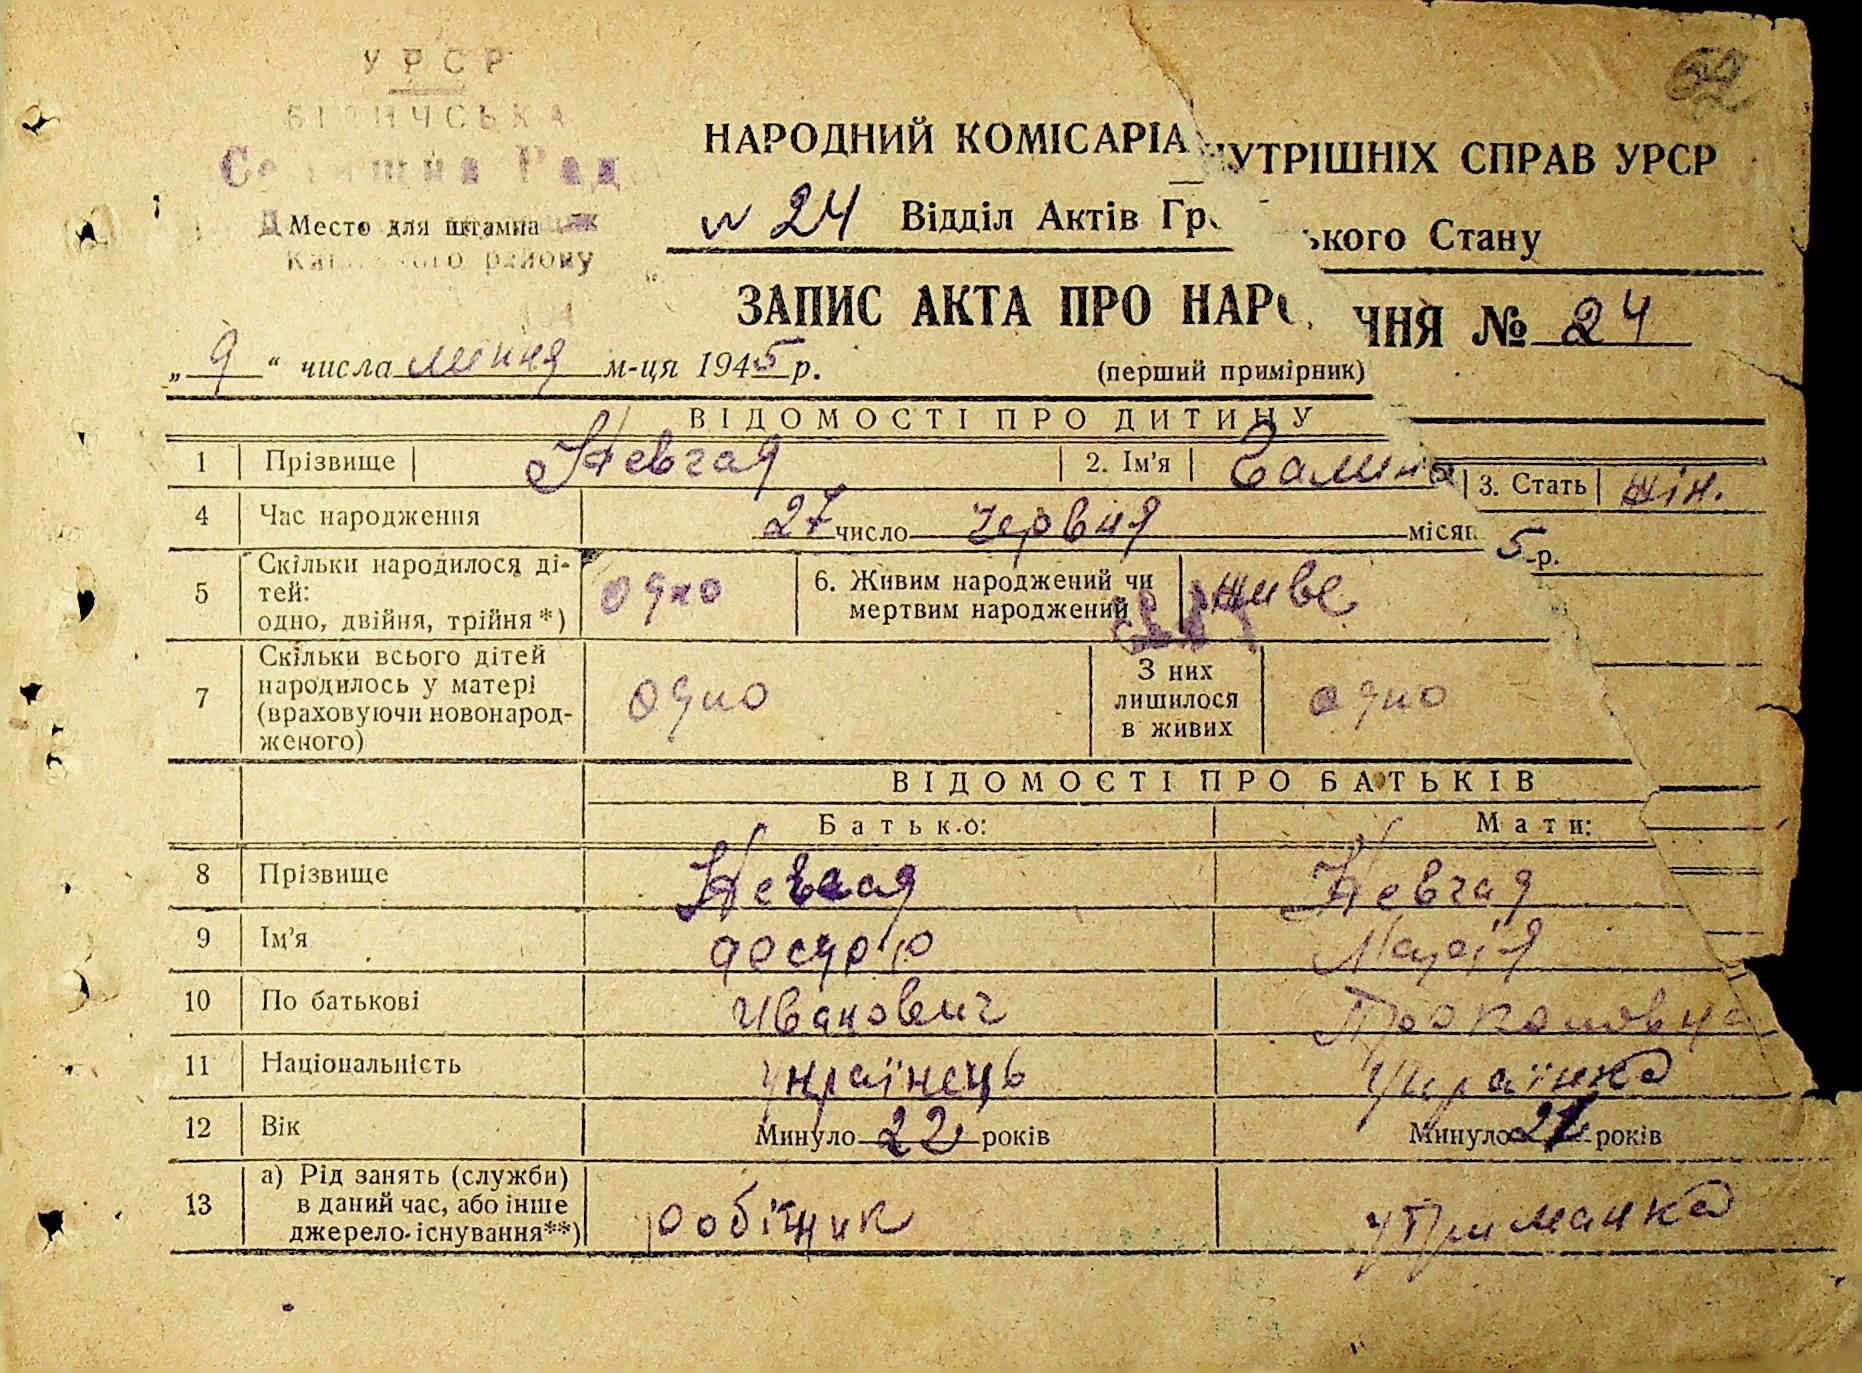 УРСР
НАРОДНИЙ КОМІСАРІА УТРІШНІХ СПРАВ УРСР
№ 24 Відділ Актів Гр ького Стану
Место для штампа
району
ЗАПИС АКТА ПРО НАРО ЧНЯ № 24
„ 9 “ числа липня м-ця 1945 р. (перший примірник)
ВІДОМОСТІ ПРО ДИТИНУ
1 Прізвище Невгад 2. Ім'я Галина 3. Стать жін.
4 Час народження 27 число червня місяц 5 р.
5 Скільки народилося ді-
тей:
одно, двійня, трійня *) одно 6. Живим народжений чи
мертвим народжений живе
7 Скільки всього дітей
народилось у матері
(враховуючи новонарод-
женого) одно З них
лишилося
в живих одно
ВІДОМОСТІ ПРО БАТЬКІВ
Батько: Мати:
8 Прізвище Невгад Невгад
9 Ім'я Марія
10 По батькові Иванович Прокоповна
11 Національність українець українка
12 Вік Минуло 22 років Минуло 21 років
13 а) Рід занять (служби)
в даний час, або інше
джерело існування**) робітник утриманка